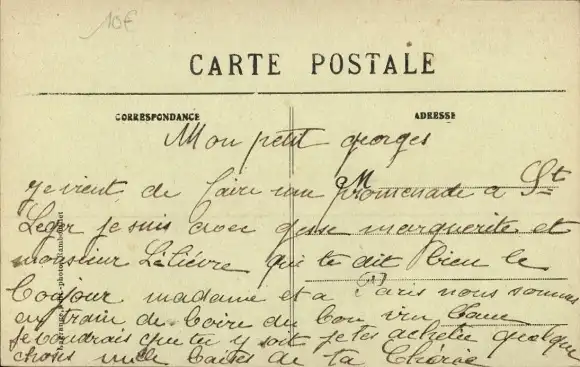 10€
CARTE POSTALE
CORRESPONDANCE
ADRESSE
Mon petit georges
je vient de faire une promenade a St
Leger je suis avec marguerite et
monsieur Lelièvre qui te dit bien le
bonjour madame est a Paris nous sommes
en train de boire du bon vin
je voudrais que tu y soit je tes achetie quelque
choses mille baises de ta Chérie